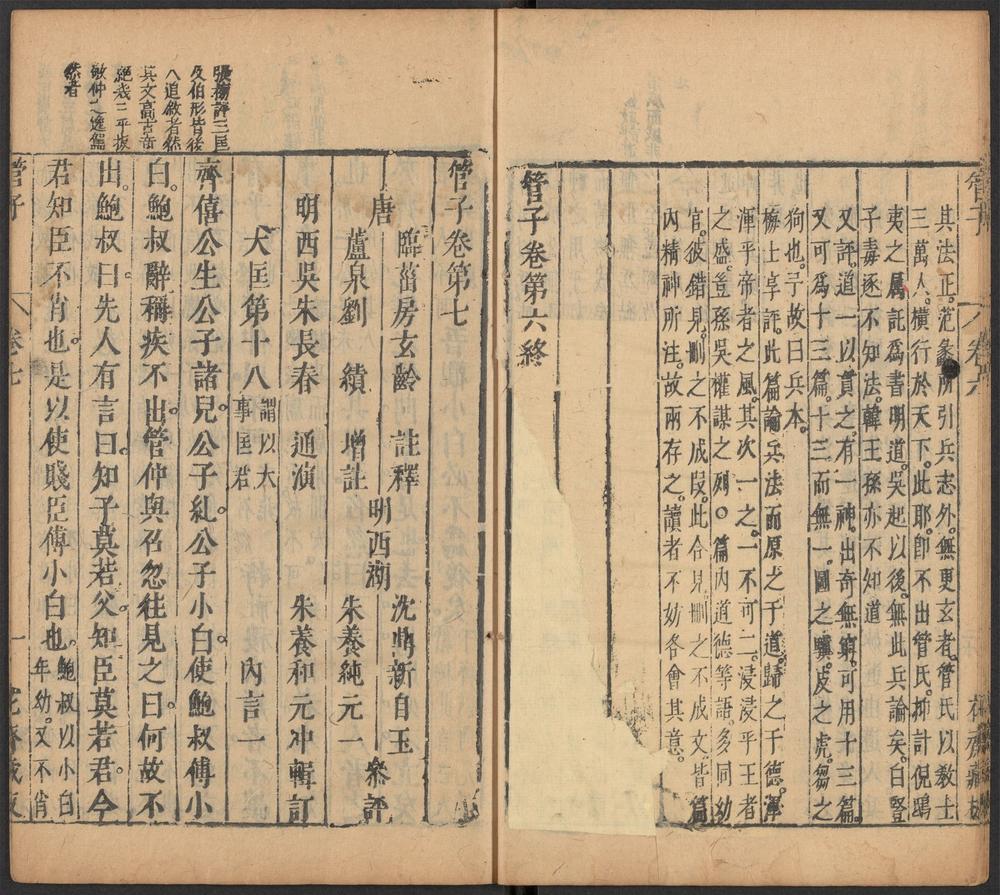 其法正。范蠡所引兵志外。無更玄者。管氏以教士
三萬人。橫行於天下。此耶。卽不出管氏。抑計倪鴟
夷之属託爲書明道。吳起以後。無此兵論矣。白豎
子毒逐不知法。韓王孫亦不知道
又評。道一以貫之。有一神。出奇無窮。可用十三篇。
又可爲十三篇。十三而無一。圖之驥。皮之虎。芻之
狗也。予故曰兵本。
梅士卓評。此篇論兵法而原之于道。歸之于德。渾
渾乎帝者之風。其次一之。一不可二。浸浸乎王者
之盛。豈孫吳權謀之列。篇內道德等語。多同幼
官。彼錯見。刪之不成段。此合見。刪之不成文。皆篇
內精神所注。故兩存之。讀者不妨各會其意。
管子卷第六終
管子
卷六
花齋藏板
張榜評三匡
及伯形皆後
人追敘者然
其文高古奇
絕
敏仲之逸鑑
然者
管子卷第七
唐
臨菑房玄齡 註釋
蘆泉劉 績 增註
明西吳朱長春 通演
明西湖
沈鼎新自玉
朱養純元一
朱養和元冲輯訂
叅評
大匡第十八
謂以大
事匡君
內言一
齊僖公生公子諸兒。公子糺。公子小白。使鮑叔傅小
白。鮑叔辭稱疾不出。管仲與召忽往見之曰。何故不
出。鮑叔曰。先人有言曰。知子莫若父。知臣莫若君。今
君知臣不肖也。是以使賤臣傅小白也。
鮑叔以小白
年幼。又不肖
管子
卷七
一
花齋藏板